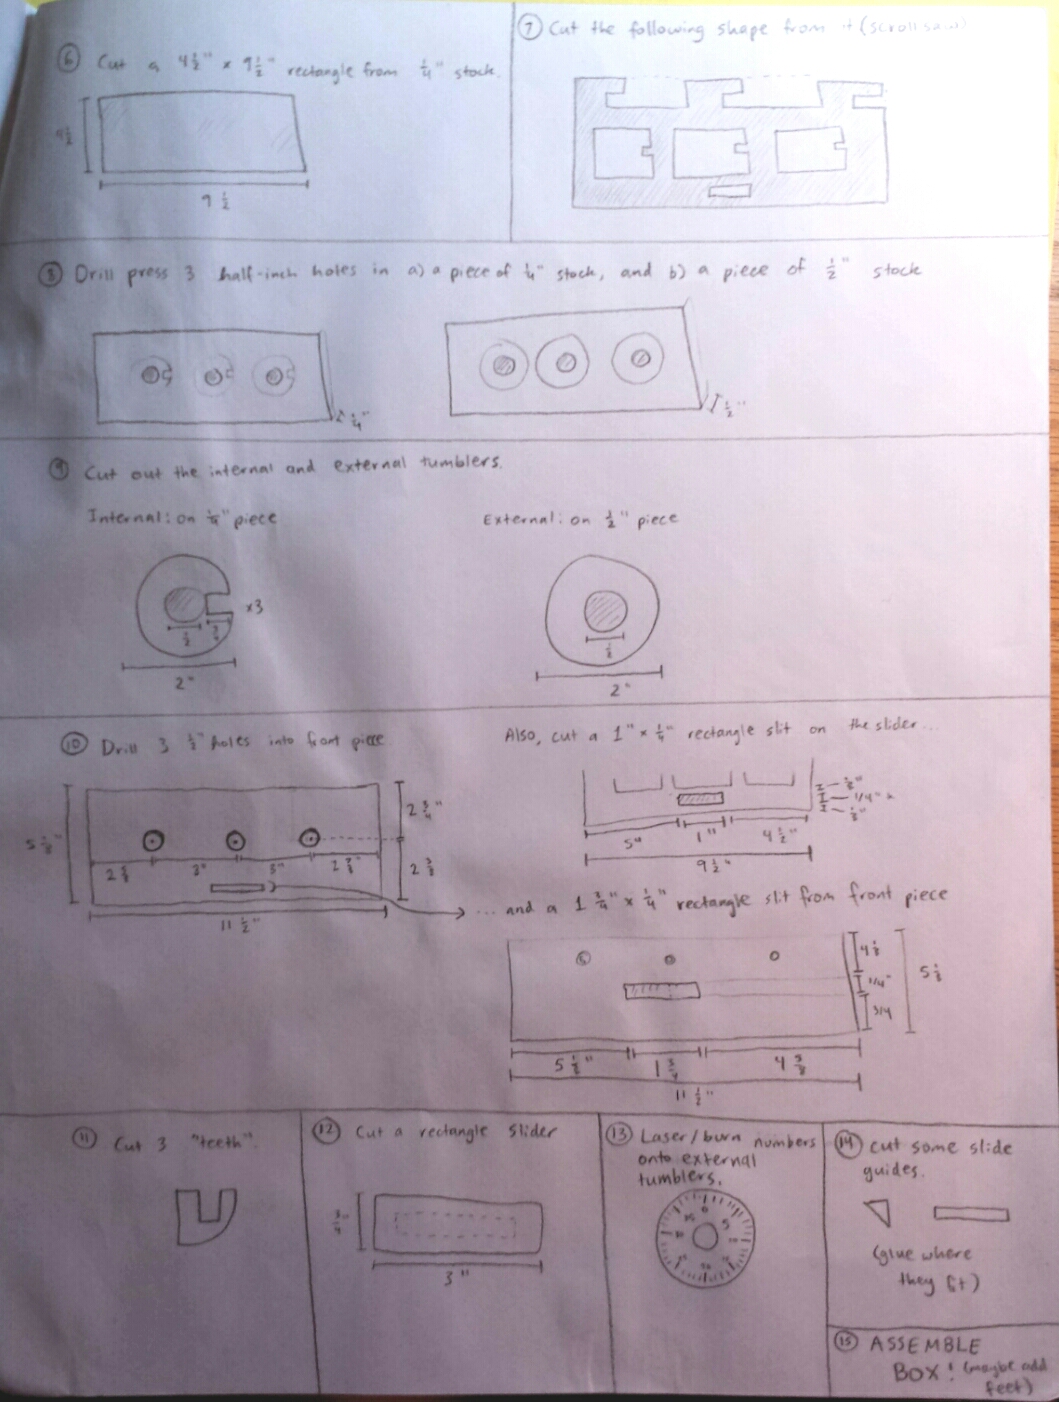 ⑥ Cut a 4½" × 9½" rectangle from ¼" stock.
4½
9 ½
⑦ Cut the following shape from it (scrollsaw)
⑧ Drill press 3 half-inch holes in a) a piece of ¼" stock, and b) a piece of ½" stock
¼"
½"
⑨ Cut out the internal and external tumblers.
Internal: on ¼" piece
×3
½
2"
External: on ½" piece
½
2"
⑩ Drill 3 ½" holes into front piece
5 ⅛"
2 ¾"
2 ⅜
3"
3"
11 ½"
Also, cut a 1" × ¼" rectangle slit on the slider...
⅛"
1/4"
⅛"
5"
1"
4 ½"
9 ½"
... and a 1 ¾" × ¼" rectangle slit from front piece
4 ⅛
1/4"
3/4
5 ⅛
5 ⅛"
1 ¾
4 ⅜
11 ½"
⑪ Cut 3 "teeth".
⑫ Cut a rectangle slider
¾"
3"
⑬ Laser/burn numbers
onto external
tumblers.
⑭ Cut some slide
guides.
(glue where
they fit)
⑮ ASSEMBLE
BOX! (maybe add
feet)